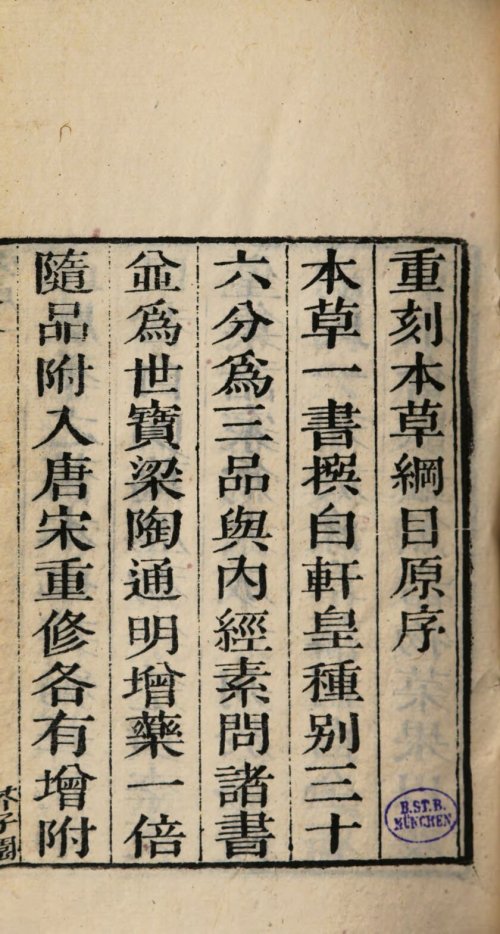 重刻本草綱目原序
本草一書撰自軒皇種別三十
六分爲三品與內經素問諸書
並爲世寶梁陶通明增藥一倍
隨品附入唐宋重修各有增附
芥子園
B.ST.B.
MÜNCHEN